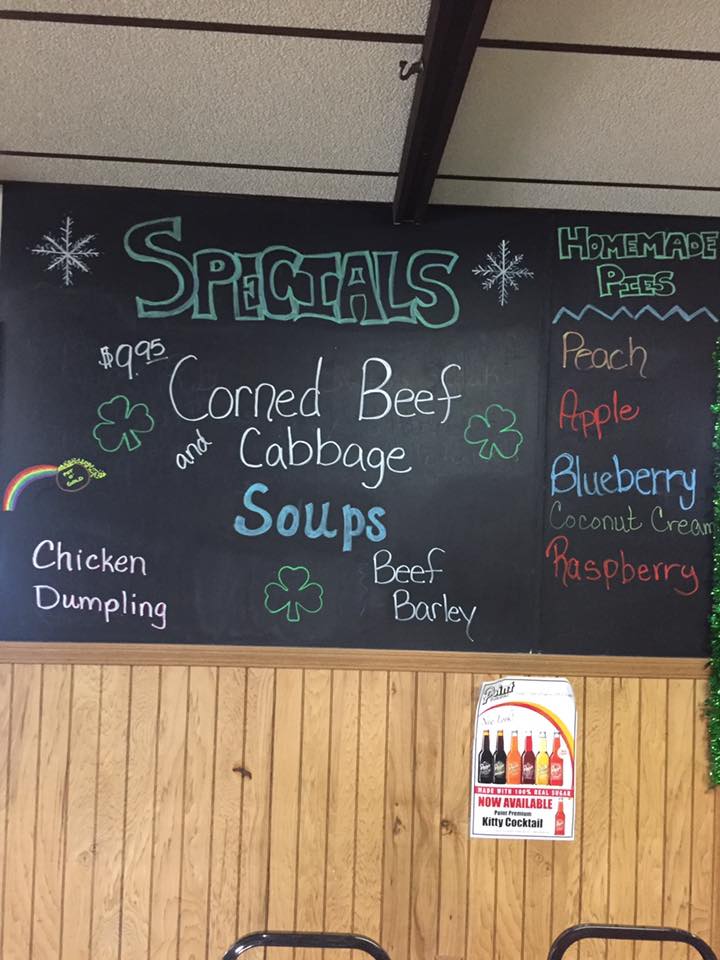 SPECIALS
$9.95
Corned Beef
and Cabbage
POT O GOLD
Soups
Chicken
Dumpling
Beef
Barley
HOMEMADE
PIES
Peach
Apple
Blueberry
Coconut Cream
Raspberry
Point
New Look!
MADE WITH 100% REAL SUGAR
NOW AVAILABLE
Point Premium
Kitty Cocktail